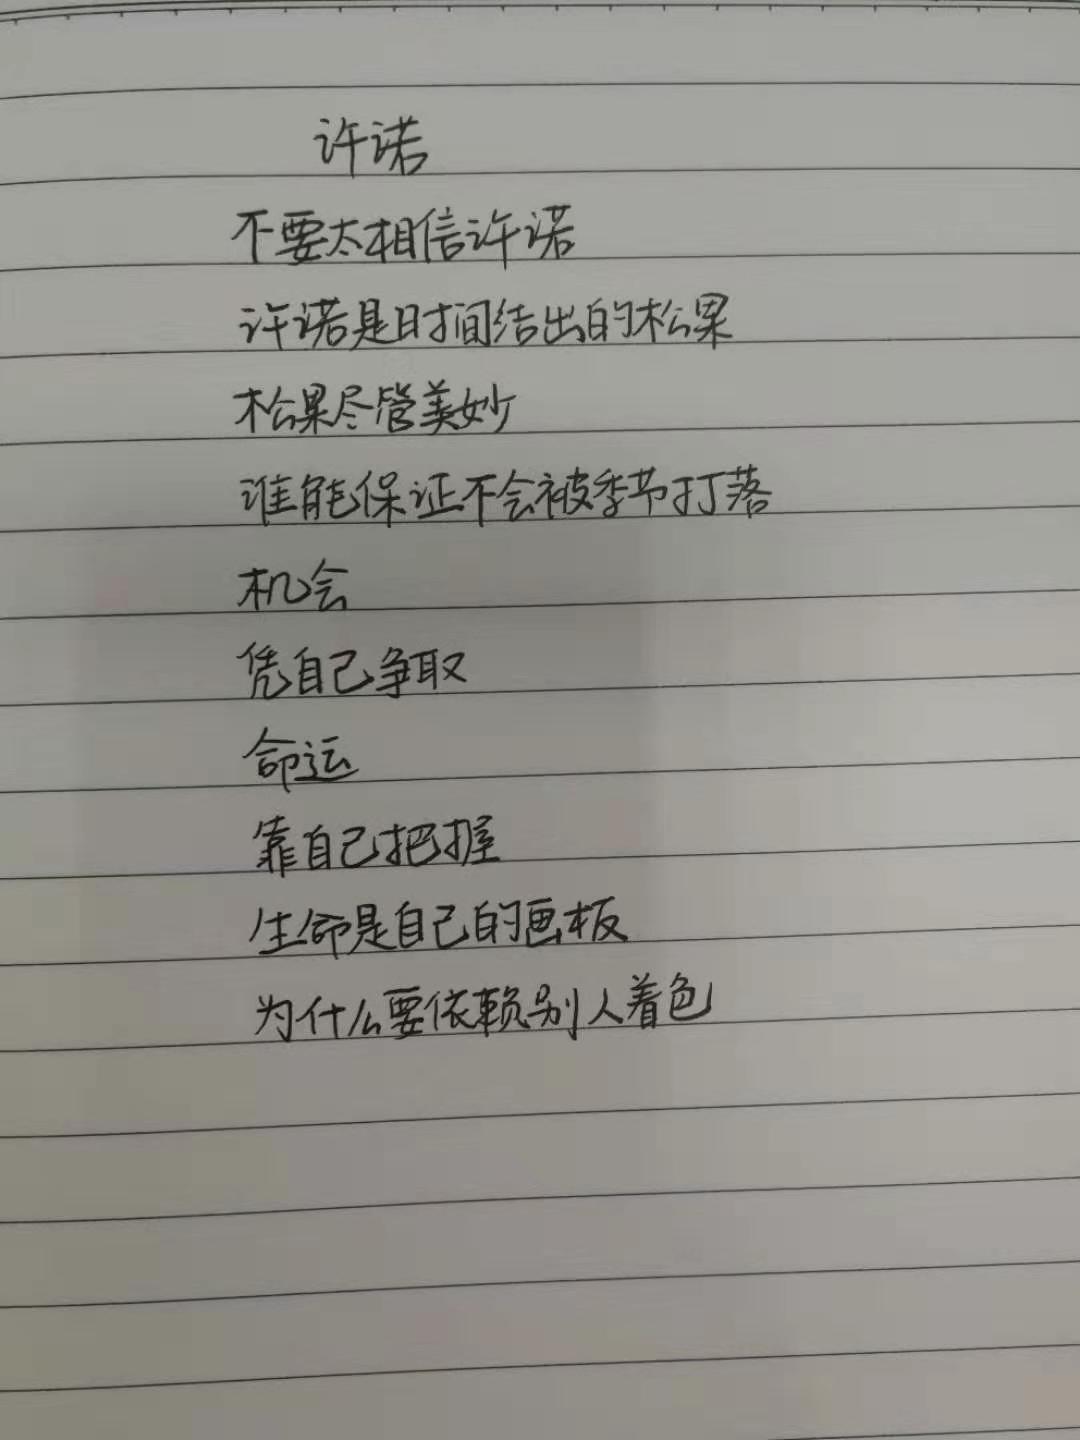 许诺
不要太相信许诺
许诺是时间结出的松果
松果尽管美妙
谁能保证不会被季节打落
机会
凭自己争取
命运
靠自己把握
生命是自己的画板
为什么要依赖别人着色